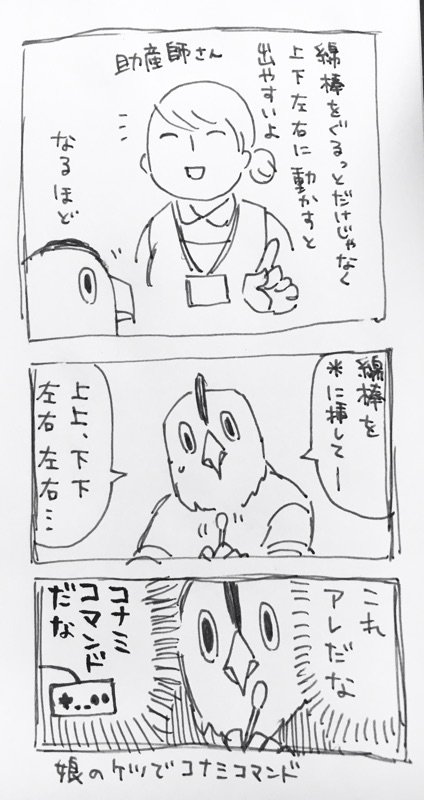 助産師さん
綿棒をぐるっとだけじゃなく
上下左右に動かすと
出やすいよ
なるほど
綿棒を
*に挿してー
上上、下下
左右左右…
これ
アレだな
コナミ
コマンド
だな
娘のケツでコナミコマンド